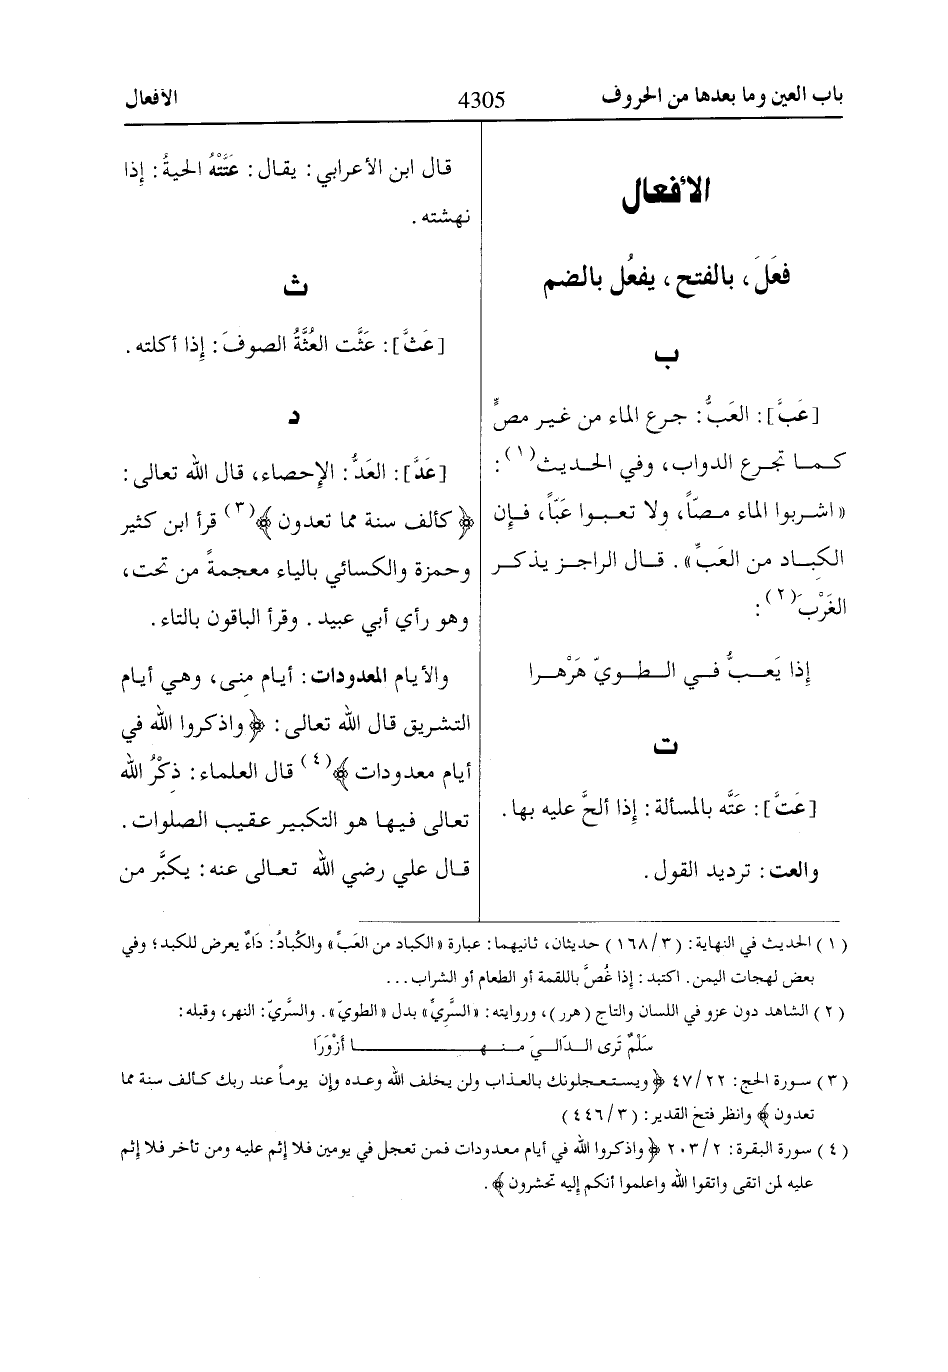 باب العين وما بعدها من الحروف 4305 الأفعال
الأفعال
فعَلَ، بالفتح، يفعُل بالضم
ب
[عَبَّ]: العَبُّ: جرع الماء من غير مصٍّ
كما تجرع الدواب، وفي الحديث(١):
«اشربوا الماء مصّاً، ولا تعبوا عَبّاً، فإن
الكباد من العَبِّ». قال الراجز يذكر
الغَرْبَ(٢):
إذا يَعبُّ في الطويّ هَرْهرا
ت
[عَتَّ]: عَتَّه بالمسألة: إذا ألحَّ عليه بها.
والعت: ترديد القول.
قال ابن الأعرابي: يقال: عَتَّتْهُ الحيةُ: إذا
نهشته.
ث
[عَثَّ]: عَثَّت العُثَّةُ الصوفَ: إذا أكلته.
د
[عَدَّ]: العَدُّ: الإحصاء، قال الله تعالى:
﴿كألف سنة مما تعدون﴾(٣) قرأ ابن كثير
وحمزة والكسائي بالياء معجمةً من تحت،
وهو رأي أبي عبيد. وقرأ الباقون بالتاء.
والأيام المعدودات: أيام مِنى، وهي أيام
التشريق قال الله تعالى: ﴿واذكروا الله في
أيام معدودات﴾(٤) قال العلماء: ذِكْرُ الله
تعالى فيها هو التكبير عقيب الصلوات.
قال علي رضي الله تعالى عنه: يكبَّر من
(١) الحديث في النهاية: (٣/١٦٨) حديثان، ثانيهما: عبارة «الكباد من العَبِّ» والكُبادُ: دَاءٌ يعرض للكبد؛ وفي
بعض لهجات اليمن. اكتبد: إذا غُصَّ باللقمة أو الطعام أو الشراب...
(٢) الشاهد دون عزو في اللسان والتاج (هرر)، وروايته: «السَّريِّ» بدل «الطويّ». والسَّريّ: النهر، وقبله:
سَلْمٌ تَرى الدَالِيَ منها أزْوَرَا
(٣) سورة الحج: ٤٧/٢٢ ﴿ويستعجلونك بالعذاب ولن يخلف الله وعده وإن يوماً عند ربك كألف سنة مما
تعدون﴾ وانظر فتح القدير: (٣/٤٤٦)
(٤) سورة البقرة: ٢٠٣/٢ ﴿واذكروا الله في أيام معدودات فمن تعجل في يومين فلا إثم عليه ومن تأخر فلا إثم
عليه لمن اتقى واتقوا الله واعلموا أنكم إليه تحشرون﴾.